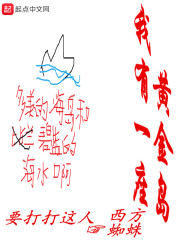 起点中文网
我有一座
黄金岛
多美的海岛和
碧蓝的
海水啊
要打打这人 西方
☞蜘蛛